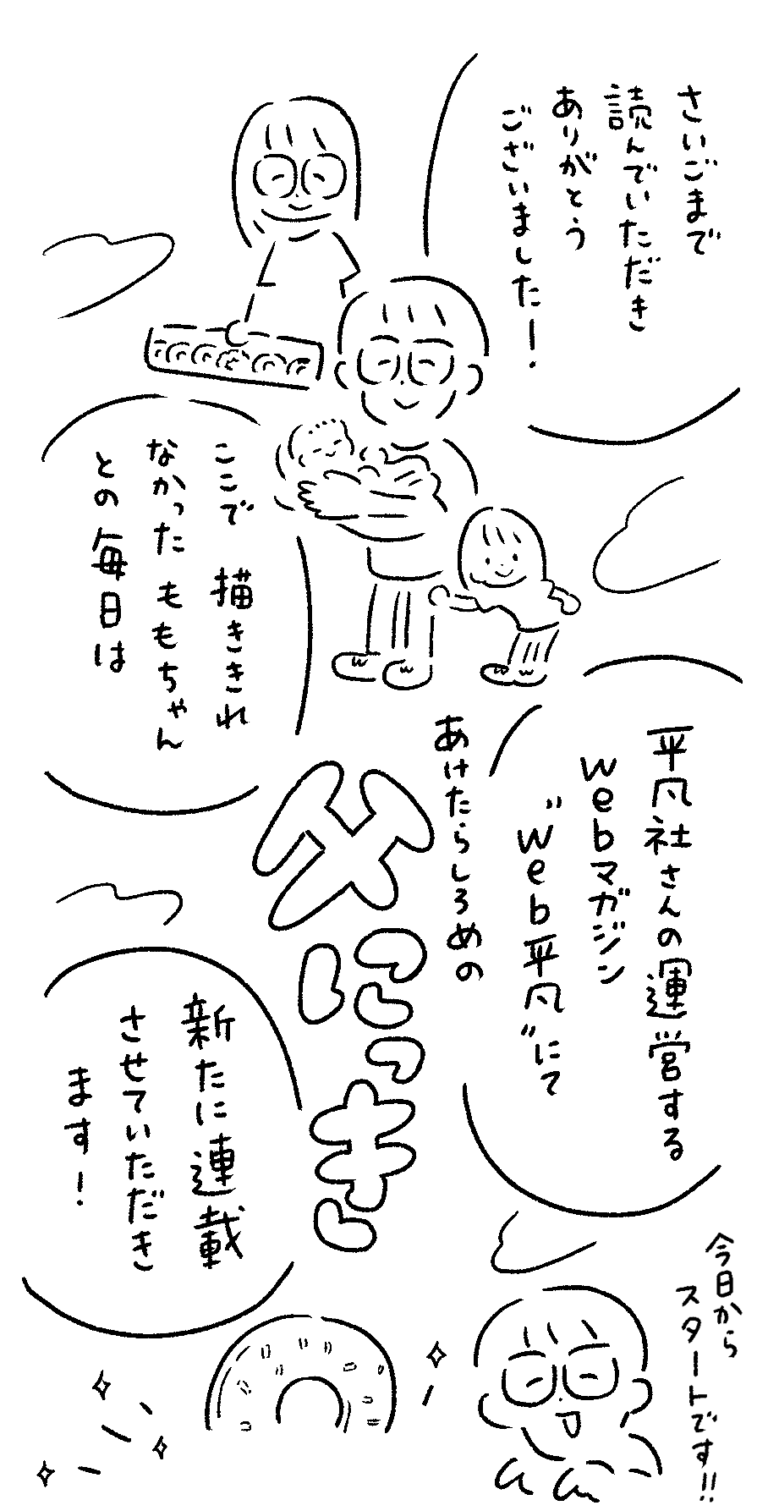 さいごまで
読んでいただき
ありがとう
ございました！
ここで 描ききれ
なかった ももちゃん
との 毎日は
平凡社さんの運営する
webマガジン
〝web平凡〟にて
あけたらしろめの
父にっき
新たに連載
させていただき
ます！
今日から
スタートです!!